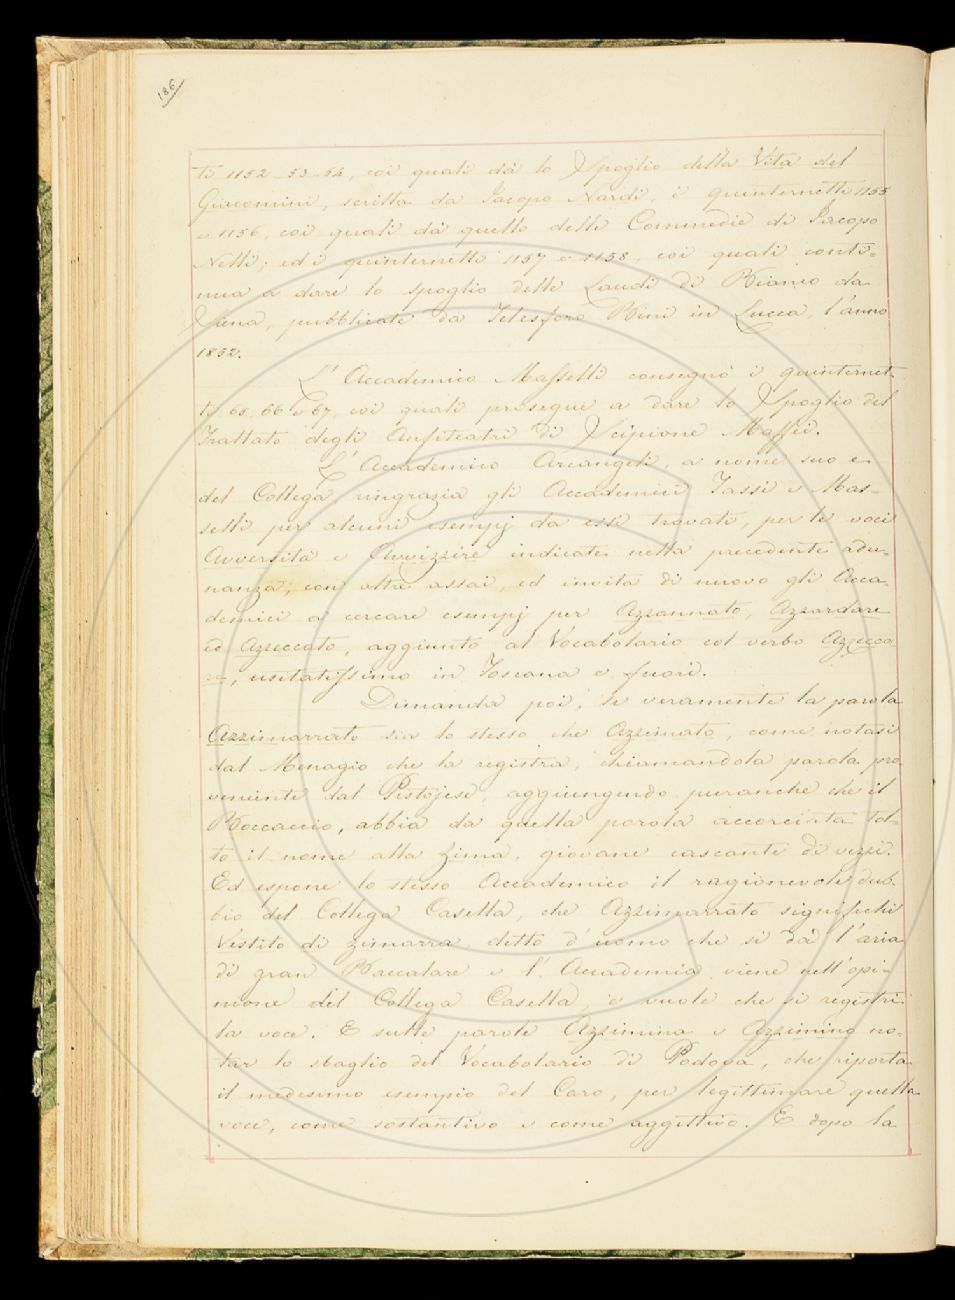 186
ti 1152-53-54, coi quali dà lo Spoglio della Vita del
Giacomini, scritta da Jacopo Nardi, i quinternetti 1155
e 1156, coi quali dà quello delle Commedie di Jacopo
Nelli; ed i quinternetti 1157 e 1158, coi quali conti=
nua a dare lo spoglio delle Laudi di Bianco da
Siena, pubblicate da Telesforo Bini in Lucca, l'anno
1852.
L'Accademico Masselli consegnò i quinternet-
ti 65, 66 e 67, coi quali prosegue a dare lo Spoglio del
Trattato degli Anfiteatri di Scipione Maffei.
L'Accademico Arcangeli, a nome suo e
del Collega ringrazia gli Accademici Tassi e Mas-
selli per alcuni esempj da essi trovati, per le voci
Avversità e Avvizzire indicate nella precedente adu-
nanza; con altre assai, ed invita di nuovo gli Acca-
demici a cercare esempj per Azzannato, Azzardare
ed Azzeccato, aggiunto al Vocabolario col verbo Azzecca
re, usitatissimo in Toscana e fuori.
Dimanda poi, se veramente la parola
Azzimarrato sia lo stesso che Azzimato, come notasi
dal Menagio che la registra, chiamandola parola pro
veniente dal Pistojese, aggiungendo puranche che il
Boccaccio, abbia da quella parola accorciata tol=
to il nome alla Zima, giovane cascante di vezzi.
Ed espone lo stesso Accademico il ragionevole dub-
bio del Collega Casella, che Azzimarrato significhi
Vestito di zimarra, detto d'uomo che si dà l'aria
di gran Baccalare e l'Accademia viene nell'opi-
nione del Collega Casella, e vuole che si registri
la voce. E sulle parole Azzimina e Azzimino no-
tar lo sbaglio del Vocabolario di Padova, che riporta
il medesimo esempio del Caro, per legittimare quella
voce, come sostantivo e come aggettivo. E dopo la